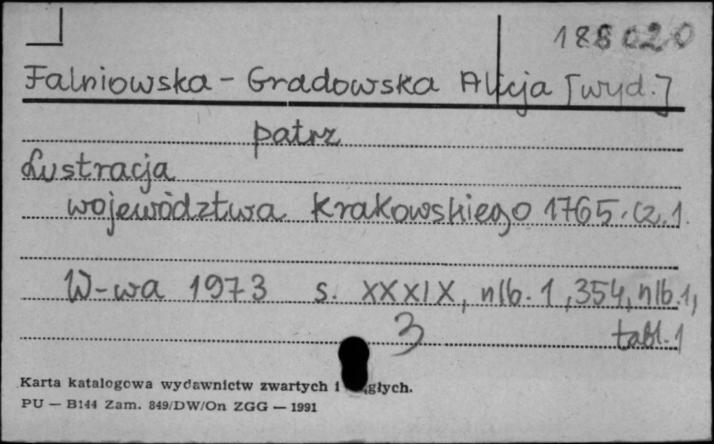 188020
Falniowska - Gradowska Alicja [wyd.]
patrz
Lustracja
województwa Krakowskiego 1765. cz. 1.
W-wa 1973 s. XXXIX, nlb. 1, 354, nlb. 1,
3 tabl. 1
Karta katalogowa wydawnictw zwartych i
PU — B144 Zam. 849/DW/On ZGG — 1991